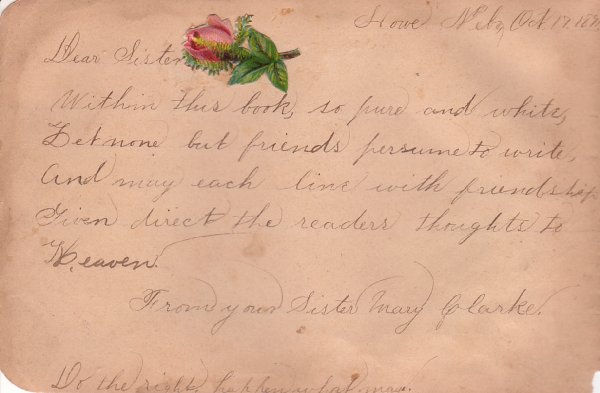 Howe Neb, Oct 17.
Dear Sister
Within this book, so pure and white,
Let none but friends persume to write,
And may each line with friendship
Given direct the readers thoughts to
Heaven.
From your Sister Mary Clarke.
Do the right, happen what may.